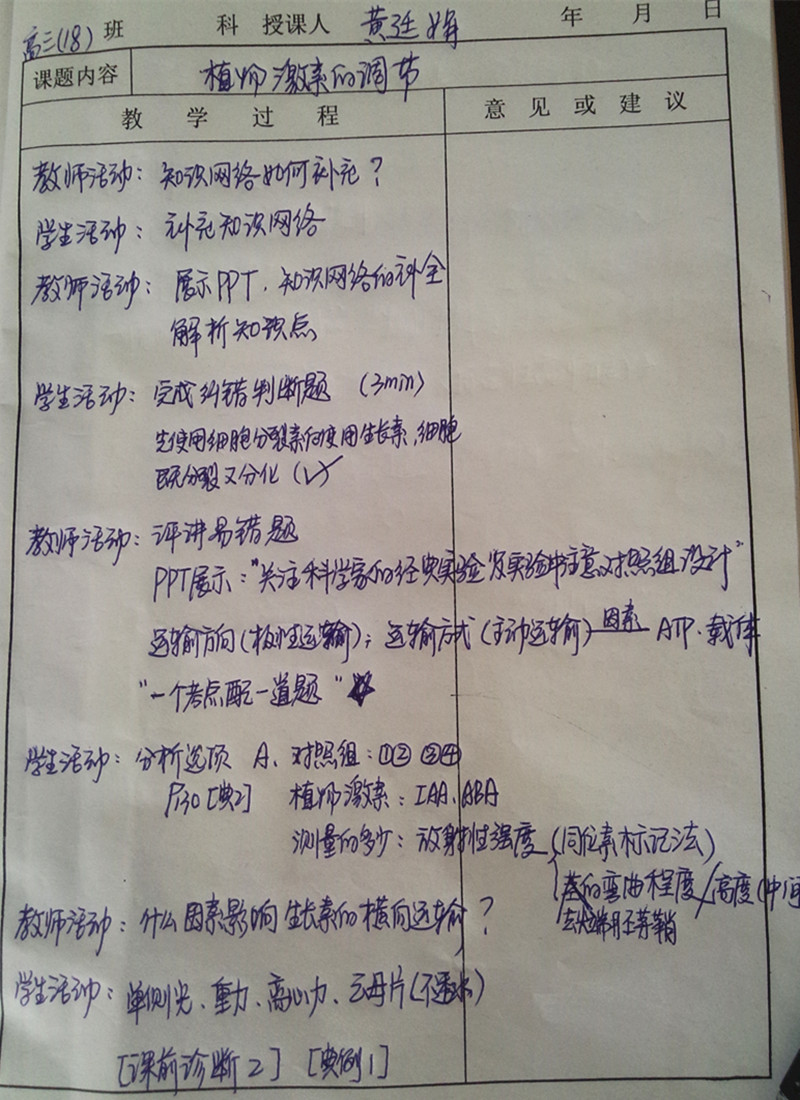 高三(18) 班 科 授课人 黄廷娟 年 月 日
课题内容 植物激素的调节
教 学 过 程 意 见 或 建 议
教师活动：知识网络如何补充？
学生活动：补充知识网络
教师活动：展示PPT、知识网络的补全
解析知识点
学生活动：完成纠错判断题 (3min)
先使用细胞分裂素后使用生长素，细胞
既分裂又分化 (√)
教师活动：评讲易错题
PPT展示："关注科学家的经典实验及实验中注意对照组设计"
运输方向(极性运输)；运输方式(主动运输) 因素 ATP、载体
"一个考点配一道题"
学生活动：分析选项 A、对照组：①② ③④
P130 [典2] 植物激素：IAA、ABA
测量的多少：放射性强度 (同位素标记法)
茎的弯曲程度/高度(中间
去尖端胚芽鞘
教师活动：什么因素影响生长素的横向运输？
学生活动：单侧光、重力、离心力、云母片(不透水)
[课前诊断2] [典例1]